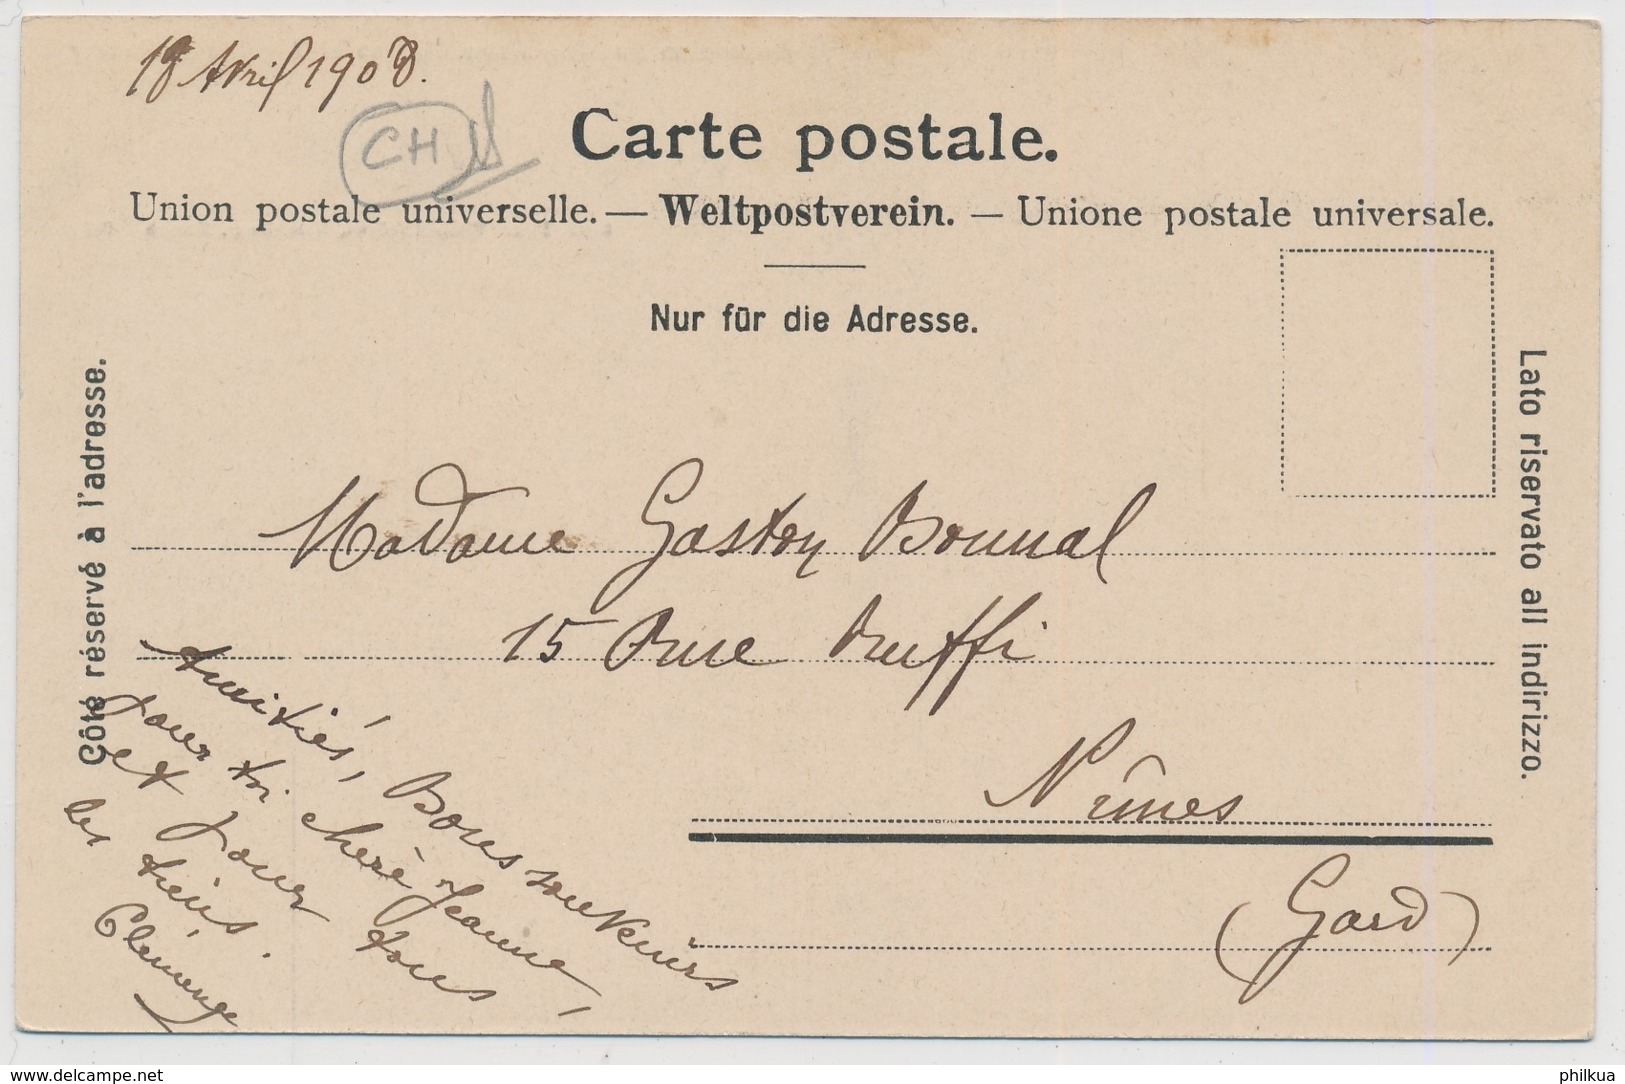 18 Avril 1908.
CH
Carte postale.
Union postale universelle. — Weltpostverein. — Unione postale universale.
Nur für die Adresse.
Côté réservé à l'adresse.
Lato riservato all indirizzo.
Madame Gaston Bonnal
15 Rue Ruffi
Nîmes
(Gard)
Amitiés, Bons souvenirs
pour toi chère Jeanne,
et pour tous
les tiens.
Clémence
www.delcampe.net
philkua